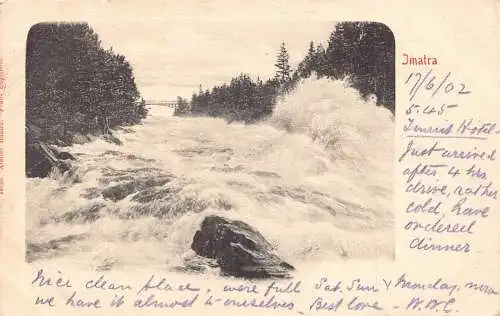 Imatra
17/6/02
5.45
Tourist Hotel
Just arrived
after 4 hrs
drive, rather
cold, have
ordered
dinner
Nice clean place, were full Sat. Sun & Monday, now
we have it almost to ourselves, Best love - W.W.C.